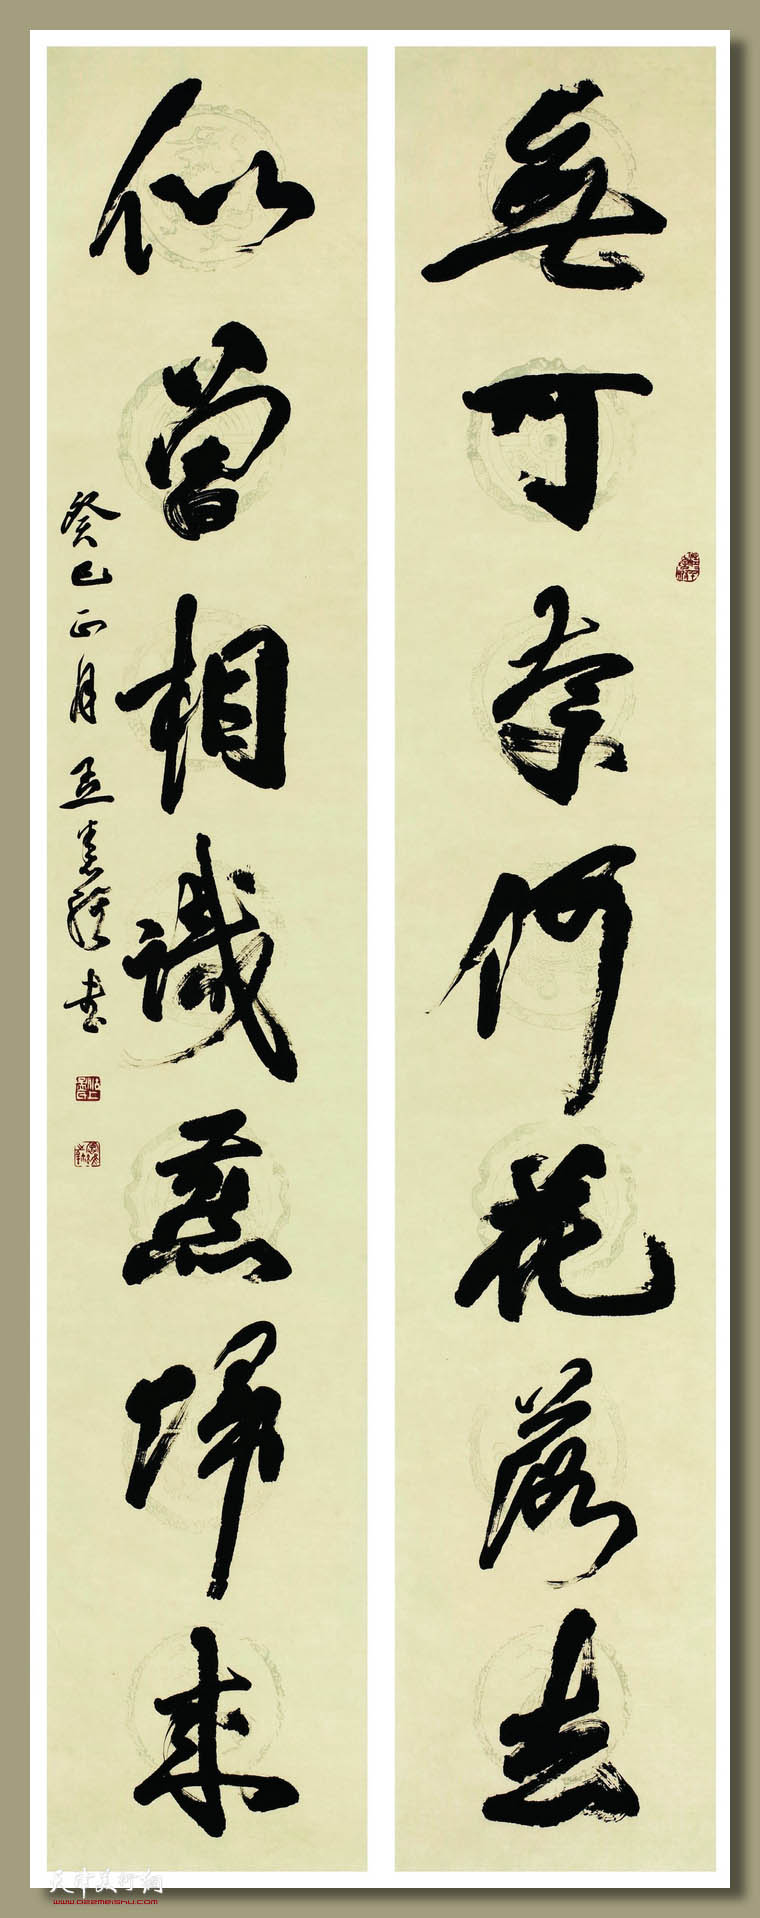 無可奈何花落去
似曾相識燕歸來
癸巳正月孟憲維書
天津美术网
www.022meishu.com